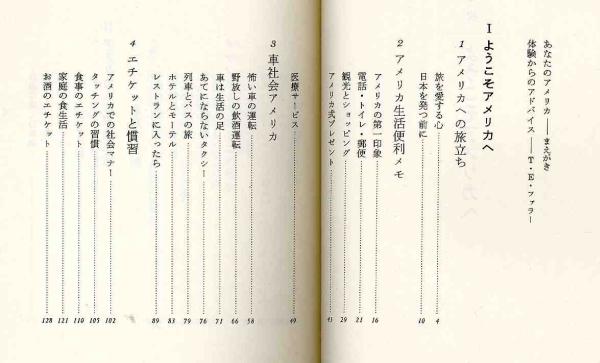 あなたのアメリカ——まえがき
体験からのアドバイス——T・E・ファラー
I ようこそアメリカへ
1 アメリカへの旅立ち
旅を愛する心 4
日本を発つ前に 10
2 アメリカ生活便利メモ
アメリカの第一印象 16
電話・トイレ・郵便 21
観光とショッピング 29
アメリカ式プレゼント 43
医療サービス 49
3 車社会アメリカ
怖い車の運転 58
野放しの飲酒運転 66
車は生活の足 71
あてにならないタクシー 76
列車とバスの旅 79
ホテルとモーテル 83
レストランに入ったら 89
4 エチケットと慣習
アメリカでの社会マナー 102
タッチングの習慣 105
食事のエチケット 110
家庭の食生活 121
お酒のエチケット 128